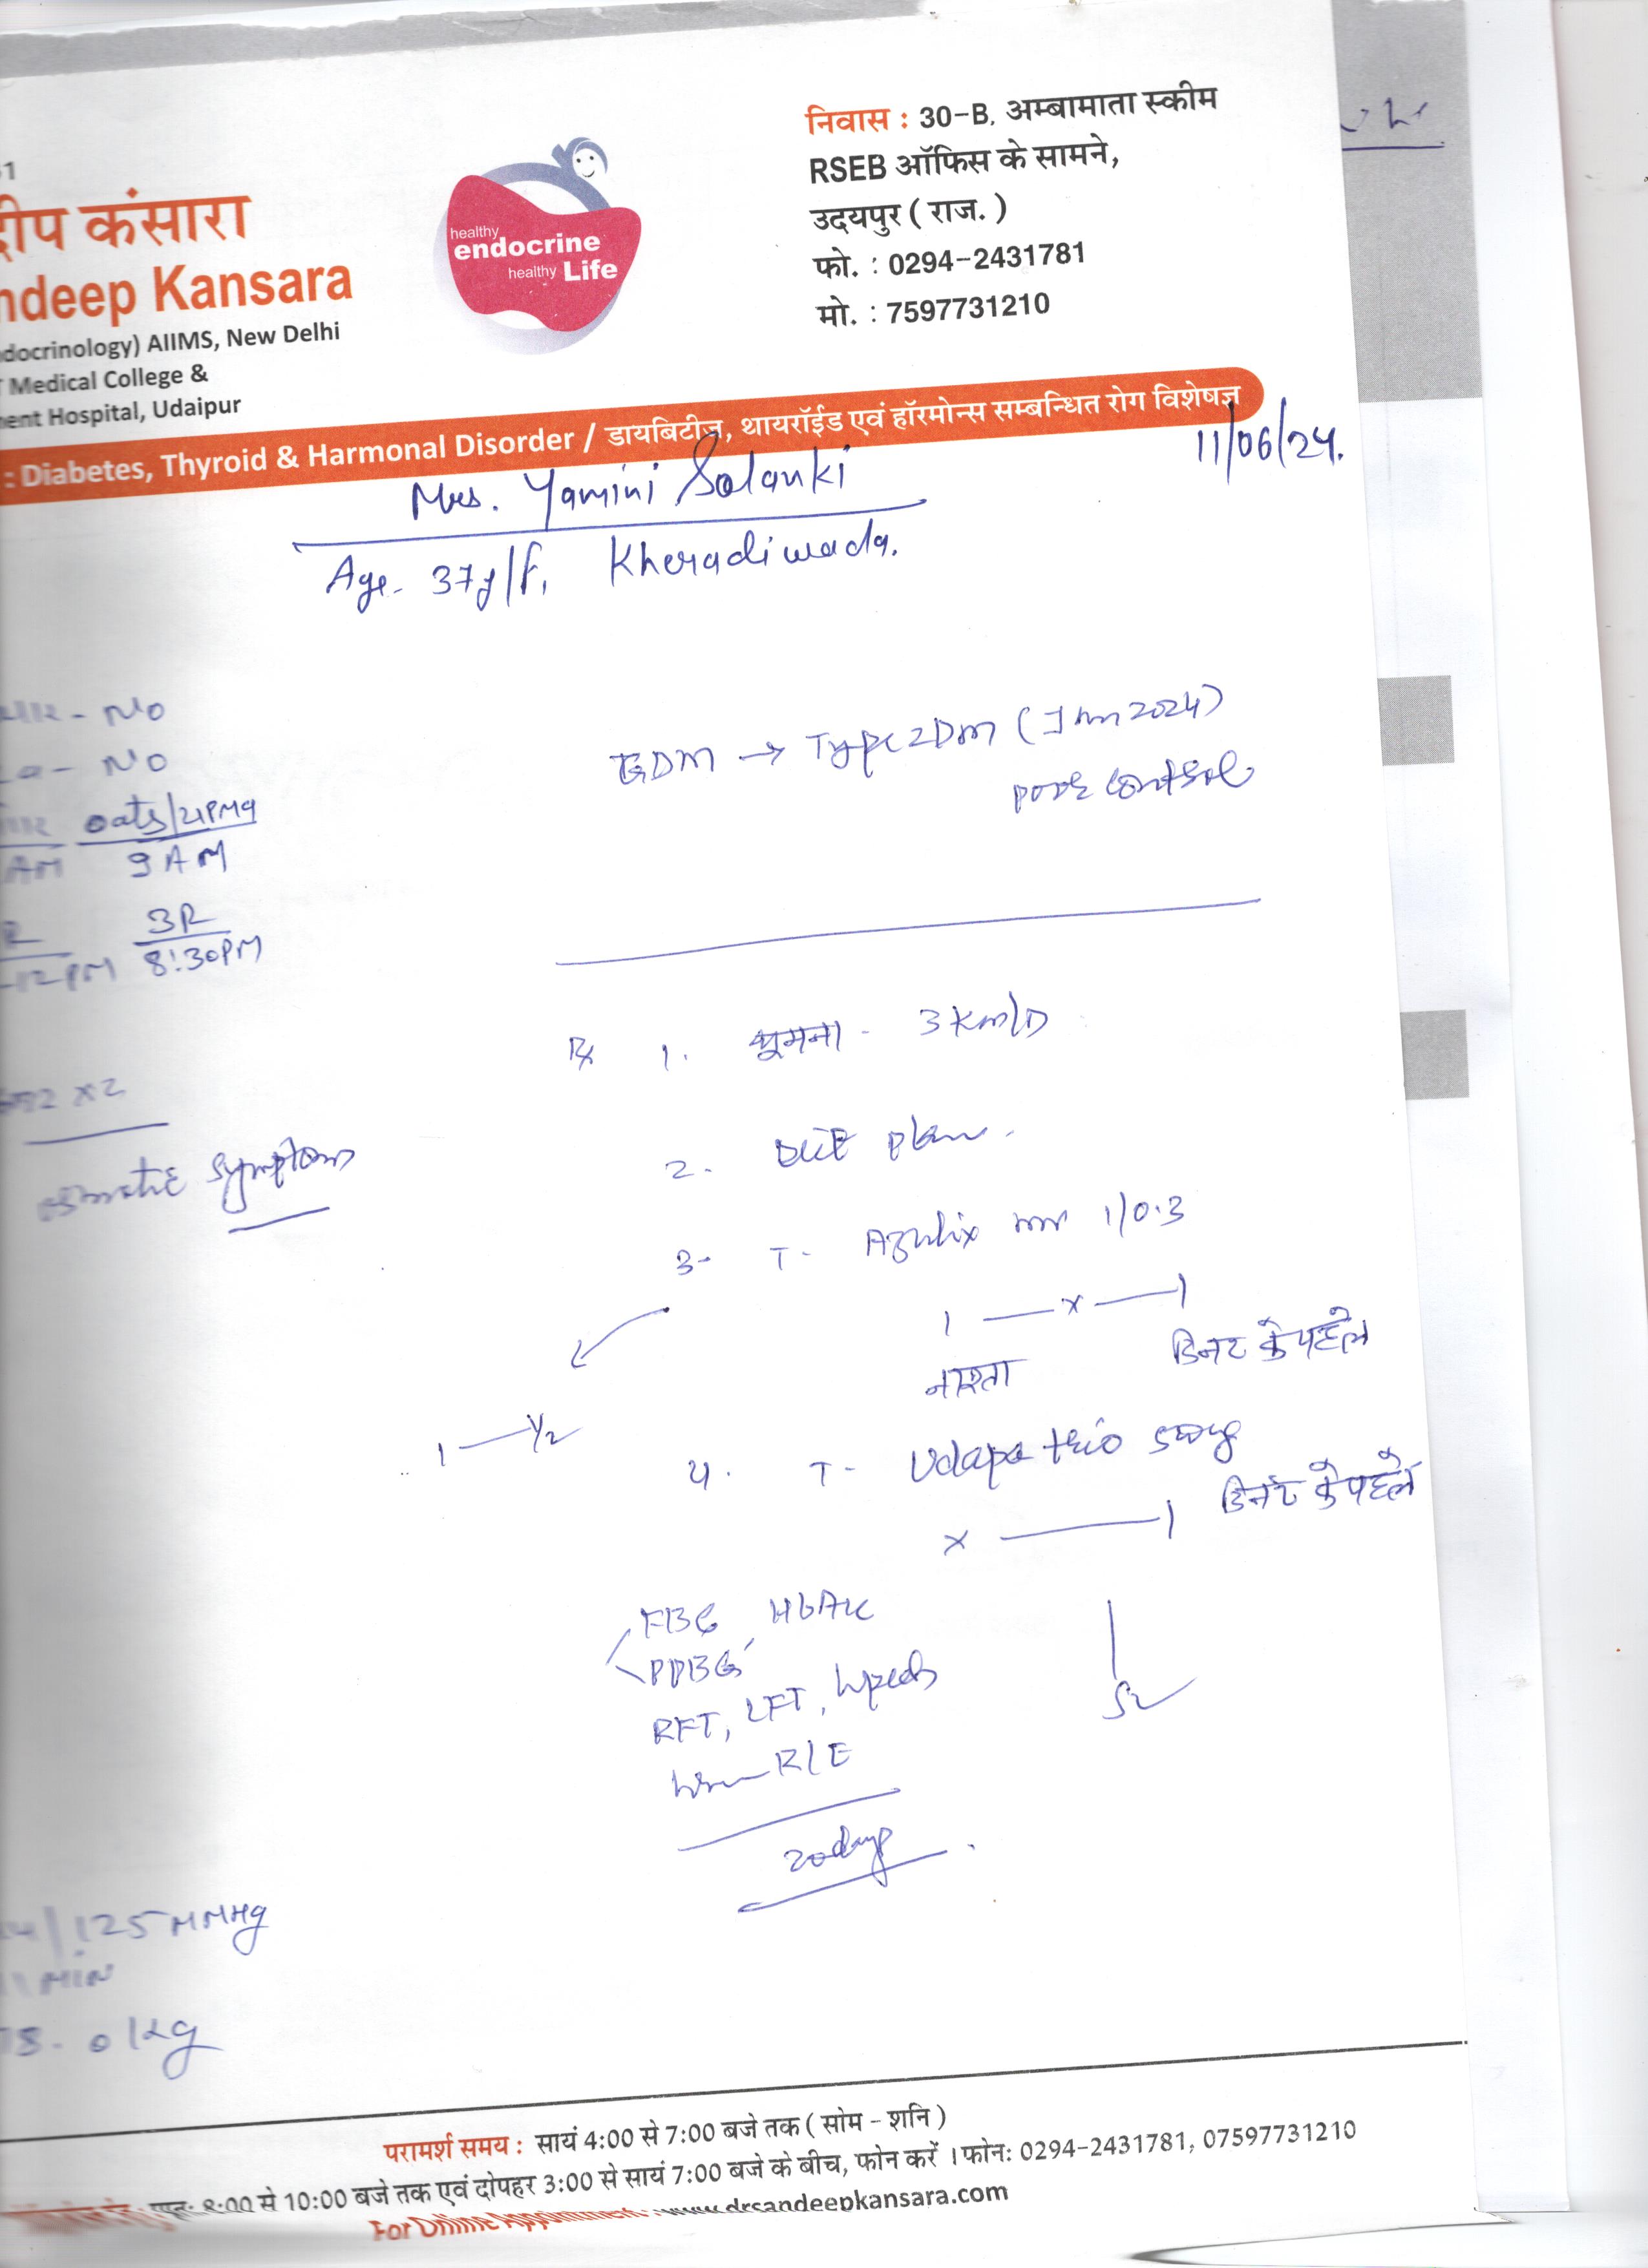 निवास : 30-B, अम्बामाता स्कीम
RSEB ऑफिस के सामने,
उदयपुर ( राज. )
फो. : 0294-2431781
मो. : 7597731210
कंसारा
ndeep Kansara
docrinology) AIIMS, New Delhi
Medical College &
ent Hospital, Udaipur
healthy
endocrine
healthy Life
: Diabetes, Thyroid & Harmonal Disorder / डायबिटीज, थायरॉईड एवं हॉरमोन्स सम्बन्धित रोग विशेषज्ञ
11/06/24.
Mrs. Yamini Solanki
Age- 37y/F, Kheradiwada.
- No
- No
oats/
AM 9AM
3R
12PM 8:30PM
x2
symptoms
GDM → Type 2DM (Jan 2024)
poor control
Rx 1. घूमना - 3 km/D
2. Diet plan.
3- T- Azulix mr 1/0.3
1 — x — 1
नाश्ता डिनर के पहले
1 — 1/2
4. T- Udapa trio
x — 1 डिनर के पहले
FBG, HbA1c
PPBG
RFT, LFT, Lipids
R/E
20days
/125 MMHg
MIN
.0 kg
परामर्श समय : सायं 4:00 से 7:00 बजे तक ( सोम - शनि )
8:00 से 10:00 बजे तक एवं दोपहर 3:00 से सायं 7:00 बजे के बीच, फोन करें । फोन: 0294-2431781, 07597731210
For Online Appointment : www.drsandeepkansara.com